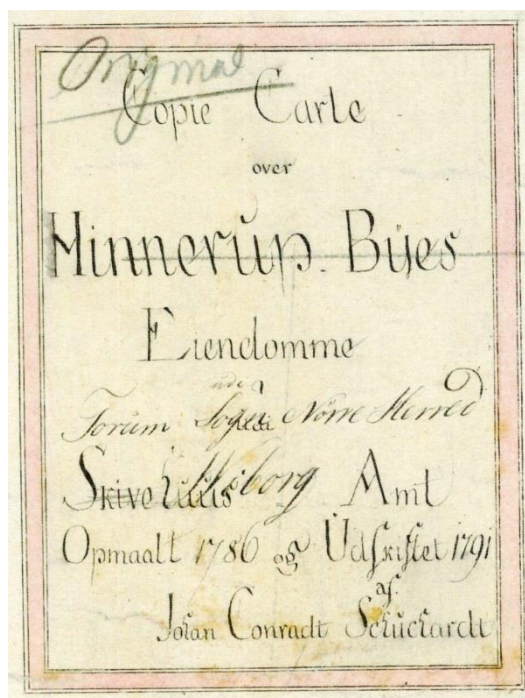 Original
Copie Carte
over
Minnerup Byes
Eiendomme
udi
Forum Sogn Nörre Herred
Skive Huus Wiborg Amt
Opmaalt 1786 og Udskiftet 1791
af
Johan Conradt Schuchardt